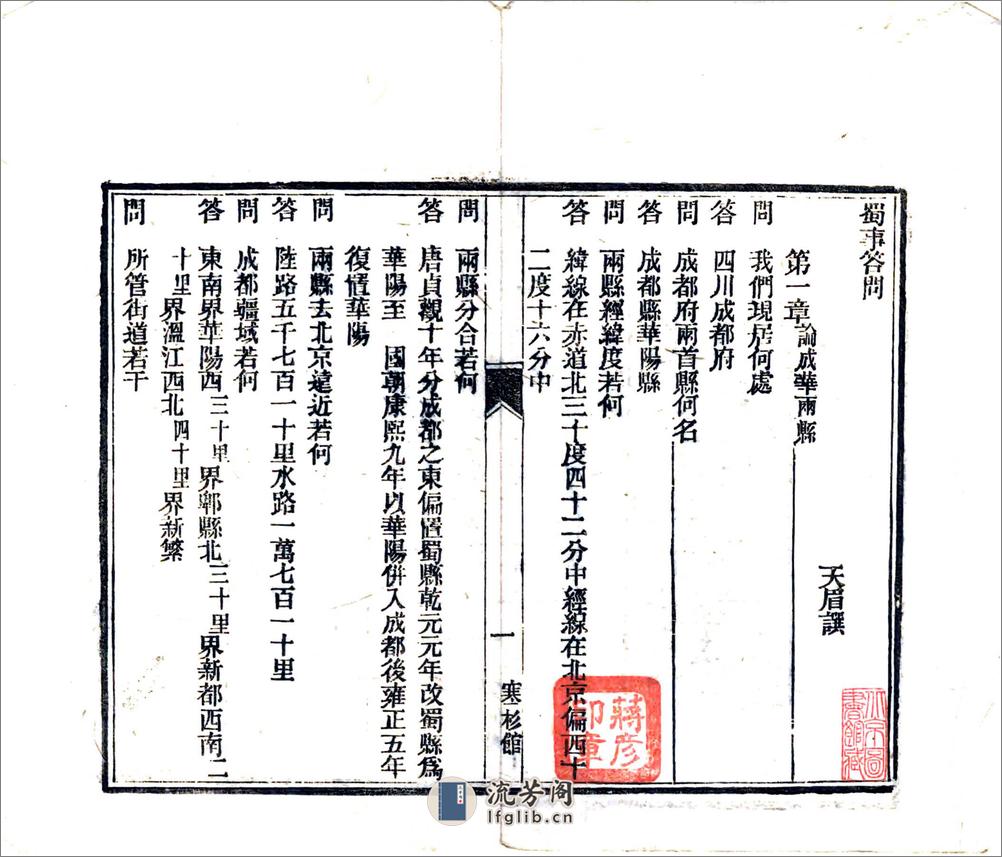 蜀事答問
天眉譔
第一章論成華兩縣
問 我們現居何處
答 四川成都府
問 成都府兩首縣何名
答 成都縣華陽縣
問 兩縣經緯度若何
答 緯線在赤道北三十度四十二分中經線在北京偏西十
二度十六分中
一
寒杉館
問 兩縣分合若何
答 唐貞觀十年分成都之東偏置蜀縣乾元元年改蜀縣爲
華陽至 國朝康熙九年以華陽併入成都後雍正五年
復置華陽
問 兩縣去北京遠近若何
答 陸路五千七百一十里水路一萬七百一十里
問 成都疆域若何
答 東南界華陽西三十里界郫縣北三十里界新都西南二
十里界溫江西北四十里界新繁
問 所管街道若干
蔣彦
印章
北京圖
書館藏
流芳阁
lfglib.cn